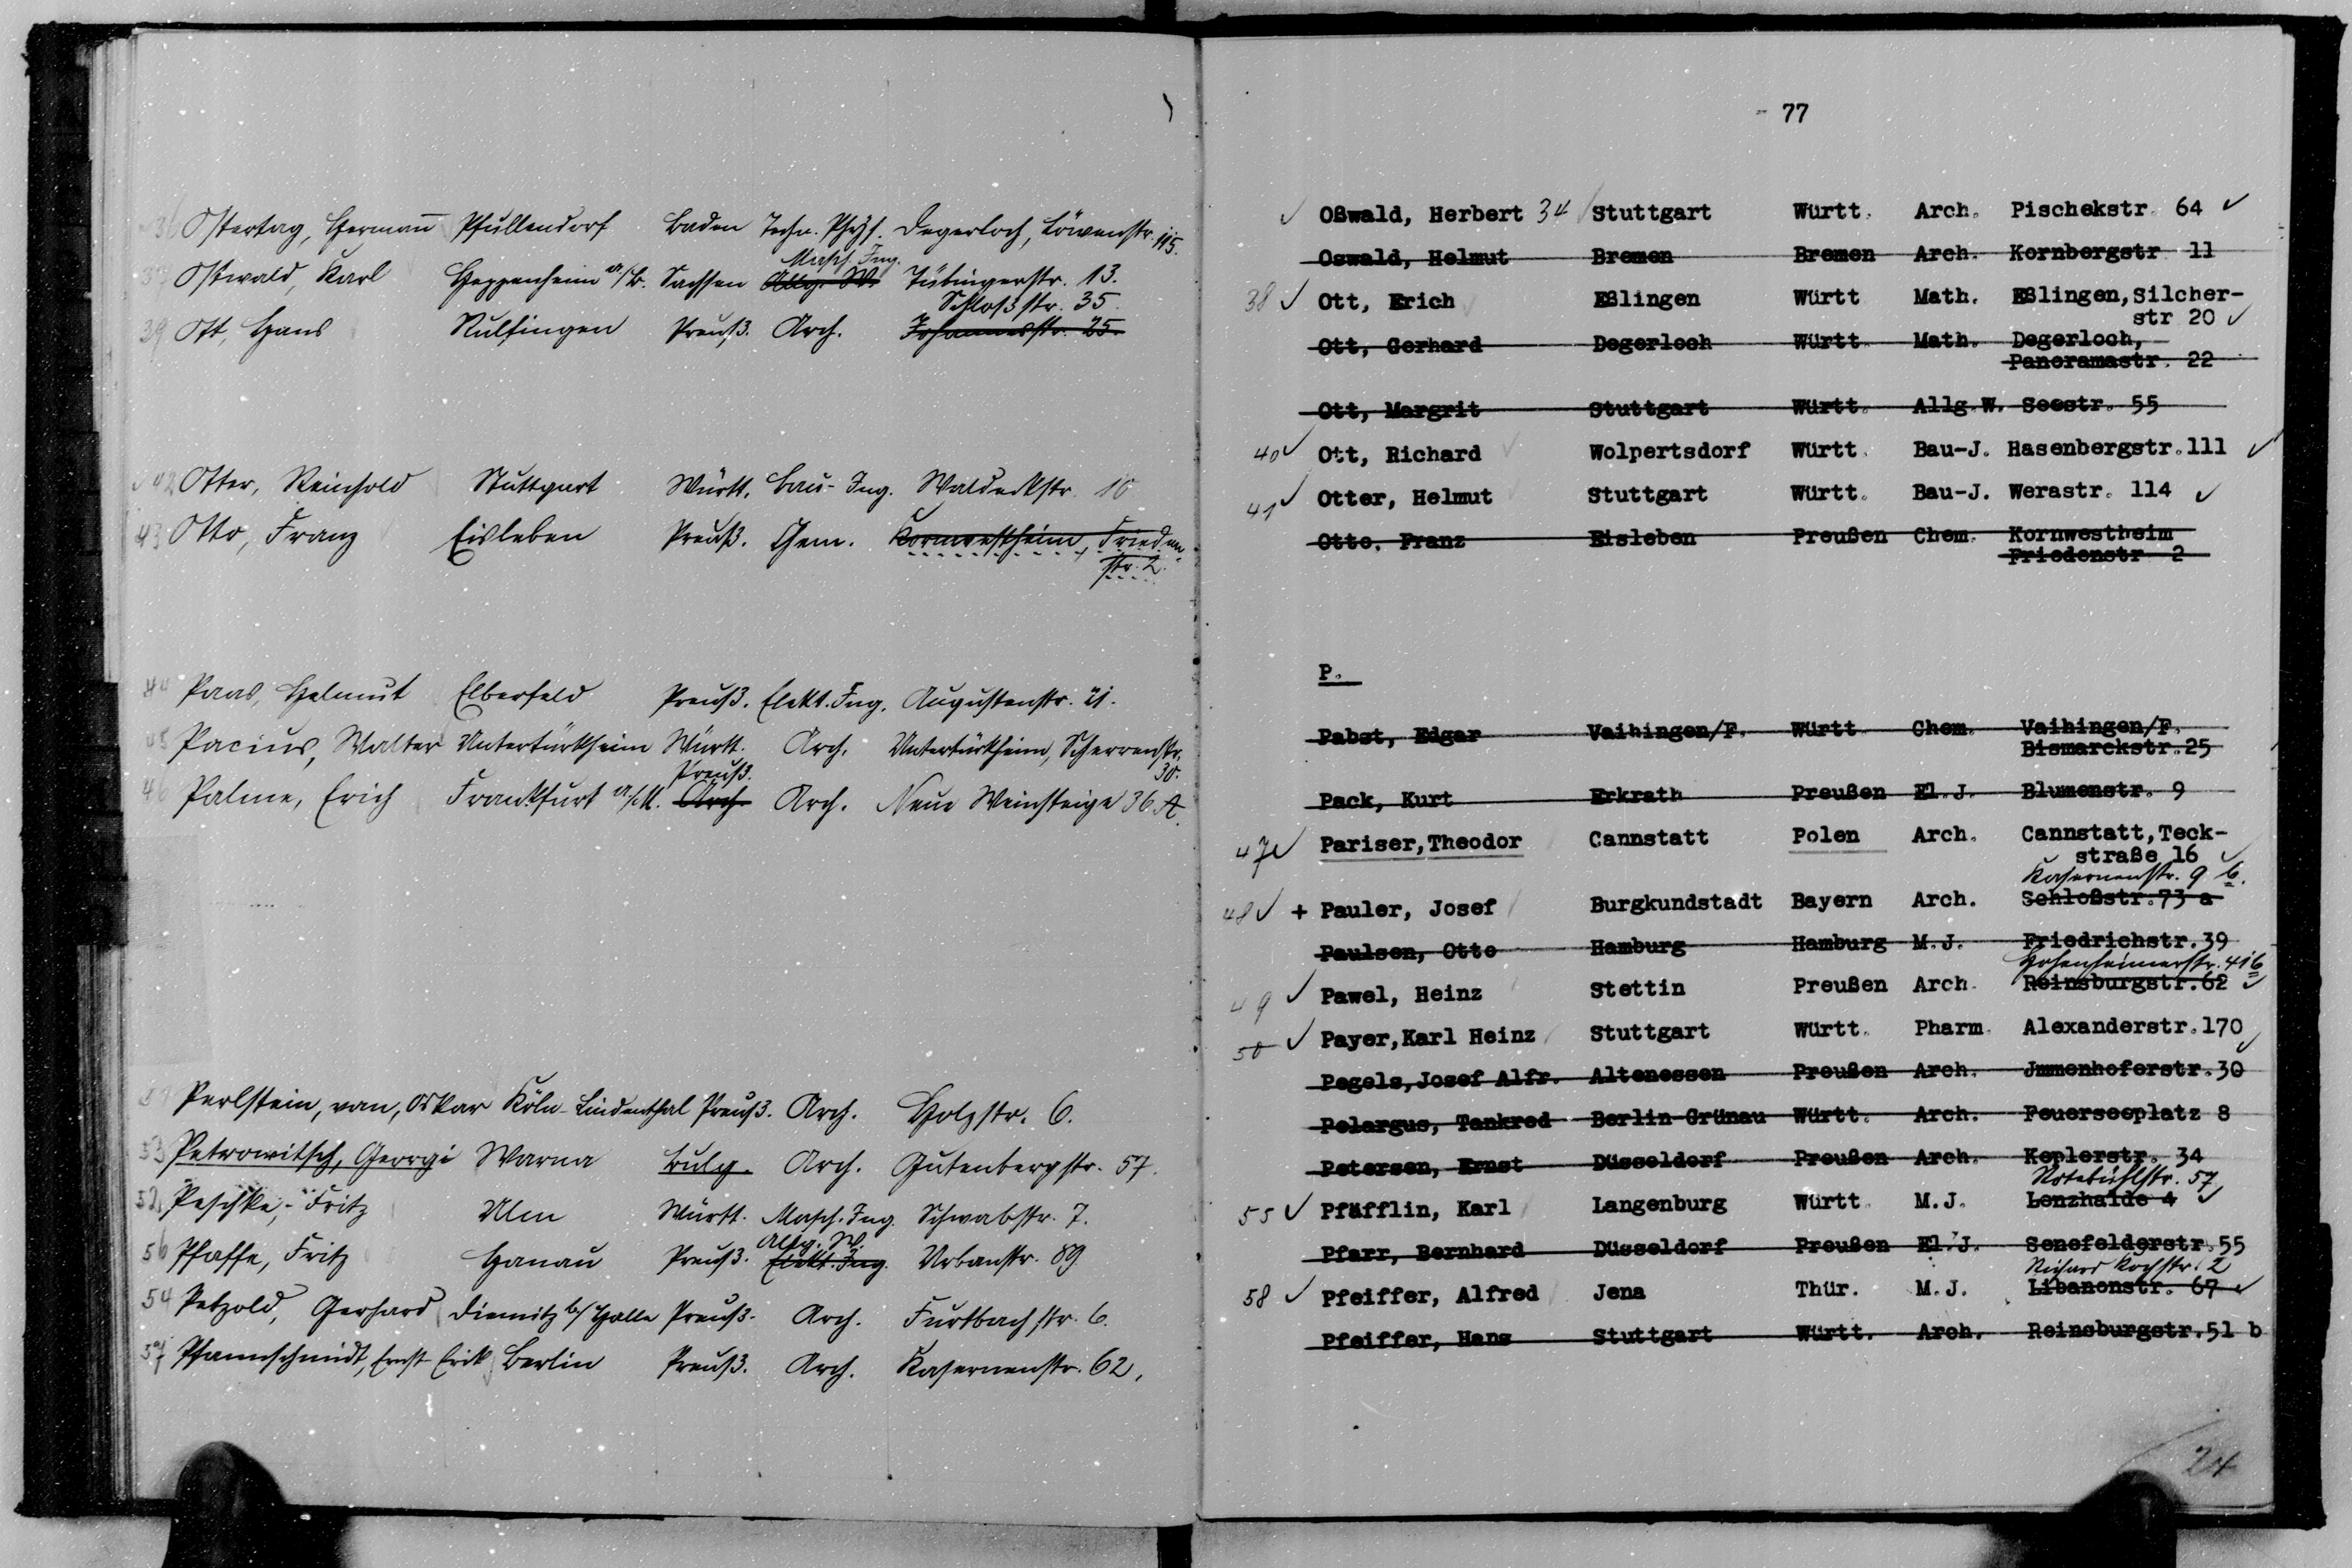 36 Ostertag, Hermann Pfullendorf Baden Techn. Phys. Degerloch, Löwenstr. 115.
Masch. Ing.
37 Ostwald, Karl Heppenheim a/B. Sachsen Allg. W. Tübingerstr. 13.
Schloßstr. 35
39 Ott, Hans Rulfingen Preuß. Arch. Johannesstr. 25.
42 Otter, Reinhold Stuttgart Württ. Bau-Ing. Waldeckstr. 10
43 Otto, Franz Eisleben Preuß. Chem. Kornwestheim, Frieden-
str. 2.
44 Paas, Helmut Elberfeld Preuß. Elekt. Ing. Augustenstr. 21.
45 Pacius, Walter Untertürkheim Württ. Arch. Untertürkheim, Scherrenstr.
Preuß. 30.
46 Palme, Erich Frankfurt a/M. Arch. Arch. Neue Weinsteige 36 A.
Perlstein, van, Oskar Köln-Lindenthal Preuß. Arch. Holzstr. 6.
53 Petrowitsch, Georgi Warna Bulg. Arch. Gutenbergstr. 57.
52 Peschke, Fritz Ulm Württ. Masch. Ing. Schwabstr. 7.
Allg. W.
56 Pfaffe, Fritz Hanau Preuß. Elekt. Ing. Urbanstr. 89
54 Petzold, Gerhard Diemitz b/Halle Preuß. Arch. Furtbachstr. 6.
57 Pfannschmidt, Ernst Erik Berlin Preuß. Arch. Kasernenstr. 62.
- 77
✓ Oßwald, Herbert 34 Stuttgart Württ. Arch. Pischekstr. 64 ✓
Oswald, Helmut Bremen Bremen Arch. Kornbergstr 11
38 ✓ Ott, Erich Eßlingen Württ Math. Eßlingen, Silcher-
str 20 ✓
Ott, Gerhard Degerloch Württ. Math. Degerloch,
Panoramastr. 22
Ott, Margrit Stuttgart Württ. Allg.W. Seestr. 55
40 ✓ Ott, Richard Wolpertsdorf Württ. Bau-J. Hasenbergstr. 111 ✓
41 ✓ Otter, Helmut Stuttgart Württ. Bau-J. Werastr. 114 ✓
Otto, Franz Eisleben Preußen Chem. Kornwestheim
Friedenstr 2
P.
Pabst, Edgar Vaihingen/F. Württ Chem. Vaihingen/F.
Bismarckstr. 25
Pack, Kurt Erkrath Preußen El.J. Blumenstr. 9
47 ✓ Pariser, Theodor Cannstatt Polen Arch. Cannstatt, Teck-
straße 16 ✓
Kasernenstr. 9 b.
48 ✓ + Pauler, Josef Burgkundstadt Bayern Arch. Schloßstr. 73 a
Paulsen, Otto Hamburg Hamburg M.J. Friedrichstr. 39
Hohenheimerstr. 41 b
49 ✓ Pawel, Heinz Stettin Preußen Arch. Reinsburgstr. 62 ✓
50 ✓ Payer, Karl Heinz Stuttgart Württ. Pharm. Alexanderstr. 170 ✓
Pegels, Josef Alfr. Altenessen Preußen Arch. Jmmenhoferstr. 30
Pelargus, Tankred Berlin-Grünau Württ. Arch. Feuerseeplatz 8
Petersen, Ernst Düsseldorf Preußen Arch. Keplerstr. 34
Rotebühlstr. 57
55 ✓ Pfäfflin, Karl Langenburg Württ. M.J. Lenzhalde 4 ✓
Pfarr, Bernhard Düsseldorf Preußen El.J. Senefelderstr. 55
Richard Kochstr. 2
58 ✓ Pfeiffer, Alfred Jena Thür. M.J. Libanonstr. 67 ✓
Pfeiffer, Hans Stuttgart Württ. Arch. Reinsburgstr. 51 b
24